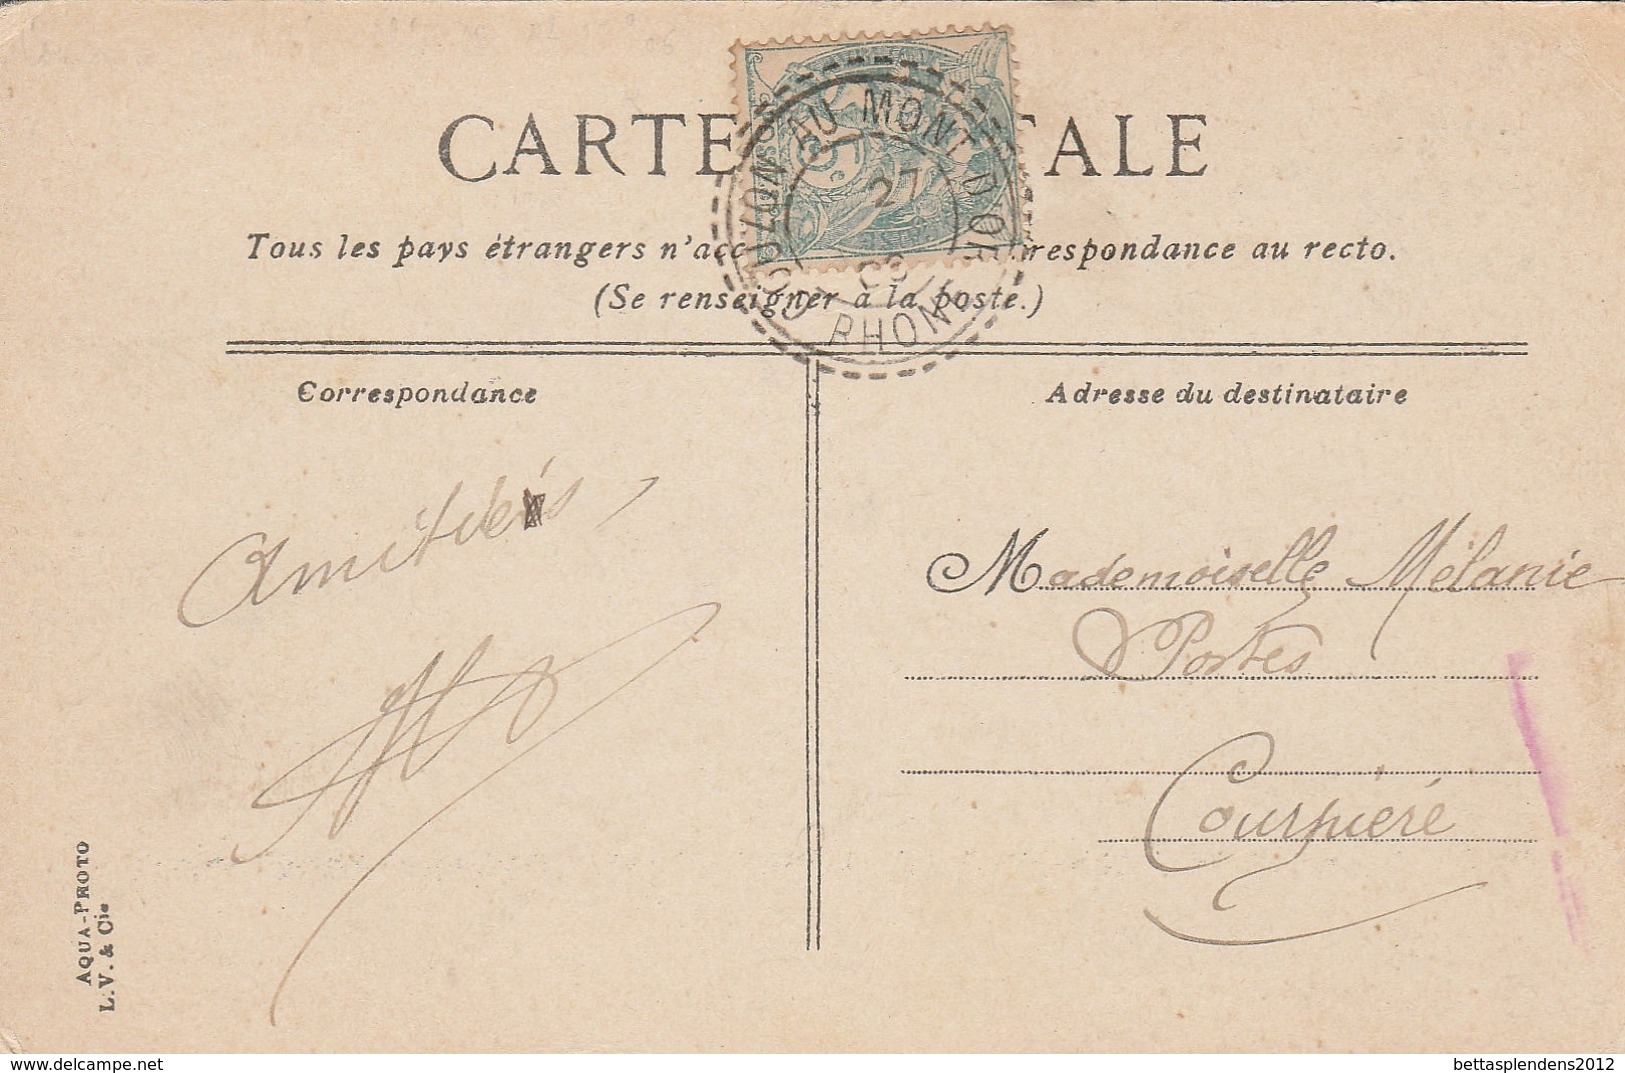 CARTE TALE
Tous les pays étrangers n'acc respondance au recto.
(Se renseigner à la poste.)
COUZON AU MONT D'OR
27
RHONE
Correspondance
Adresse du destinataire
Amitiés
Mademoiselle Mélanie
Portes
Courpière
AQUA-PHOTO
L.V. & Cie
bettasplendens2012